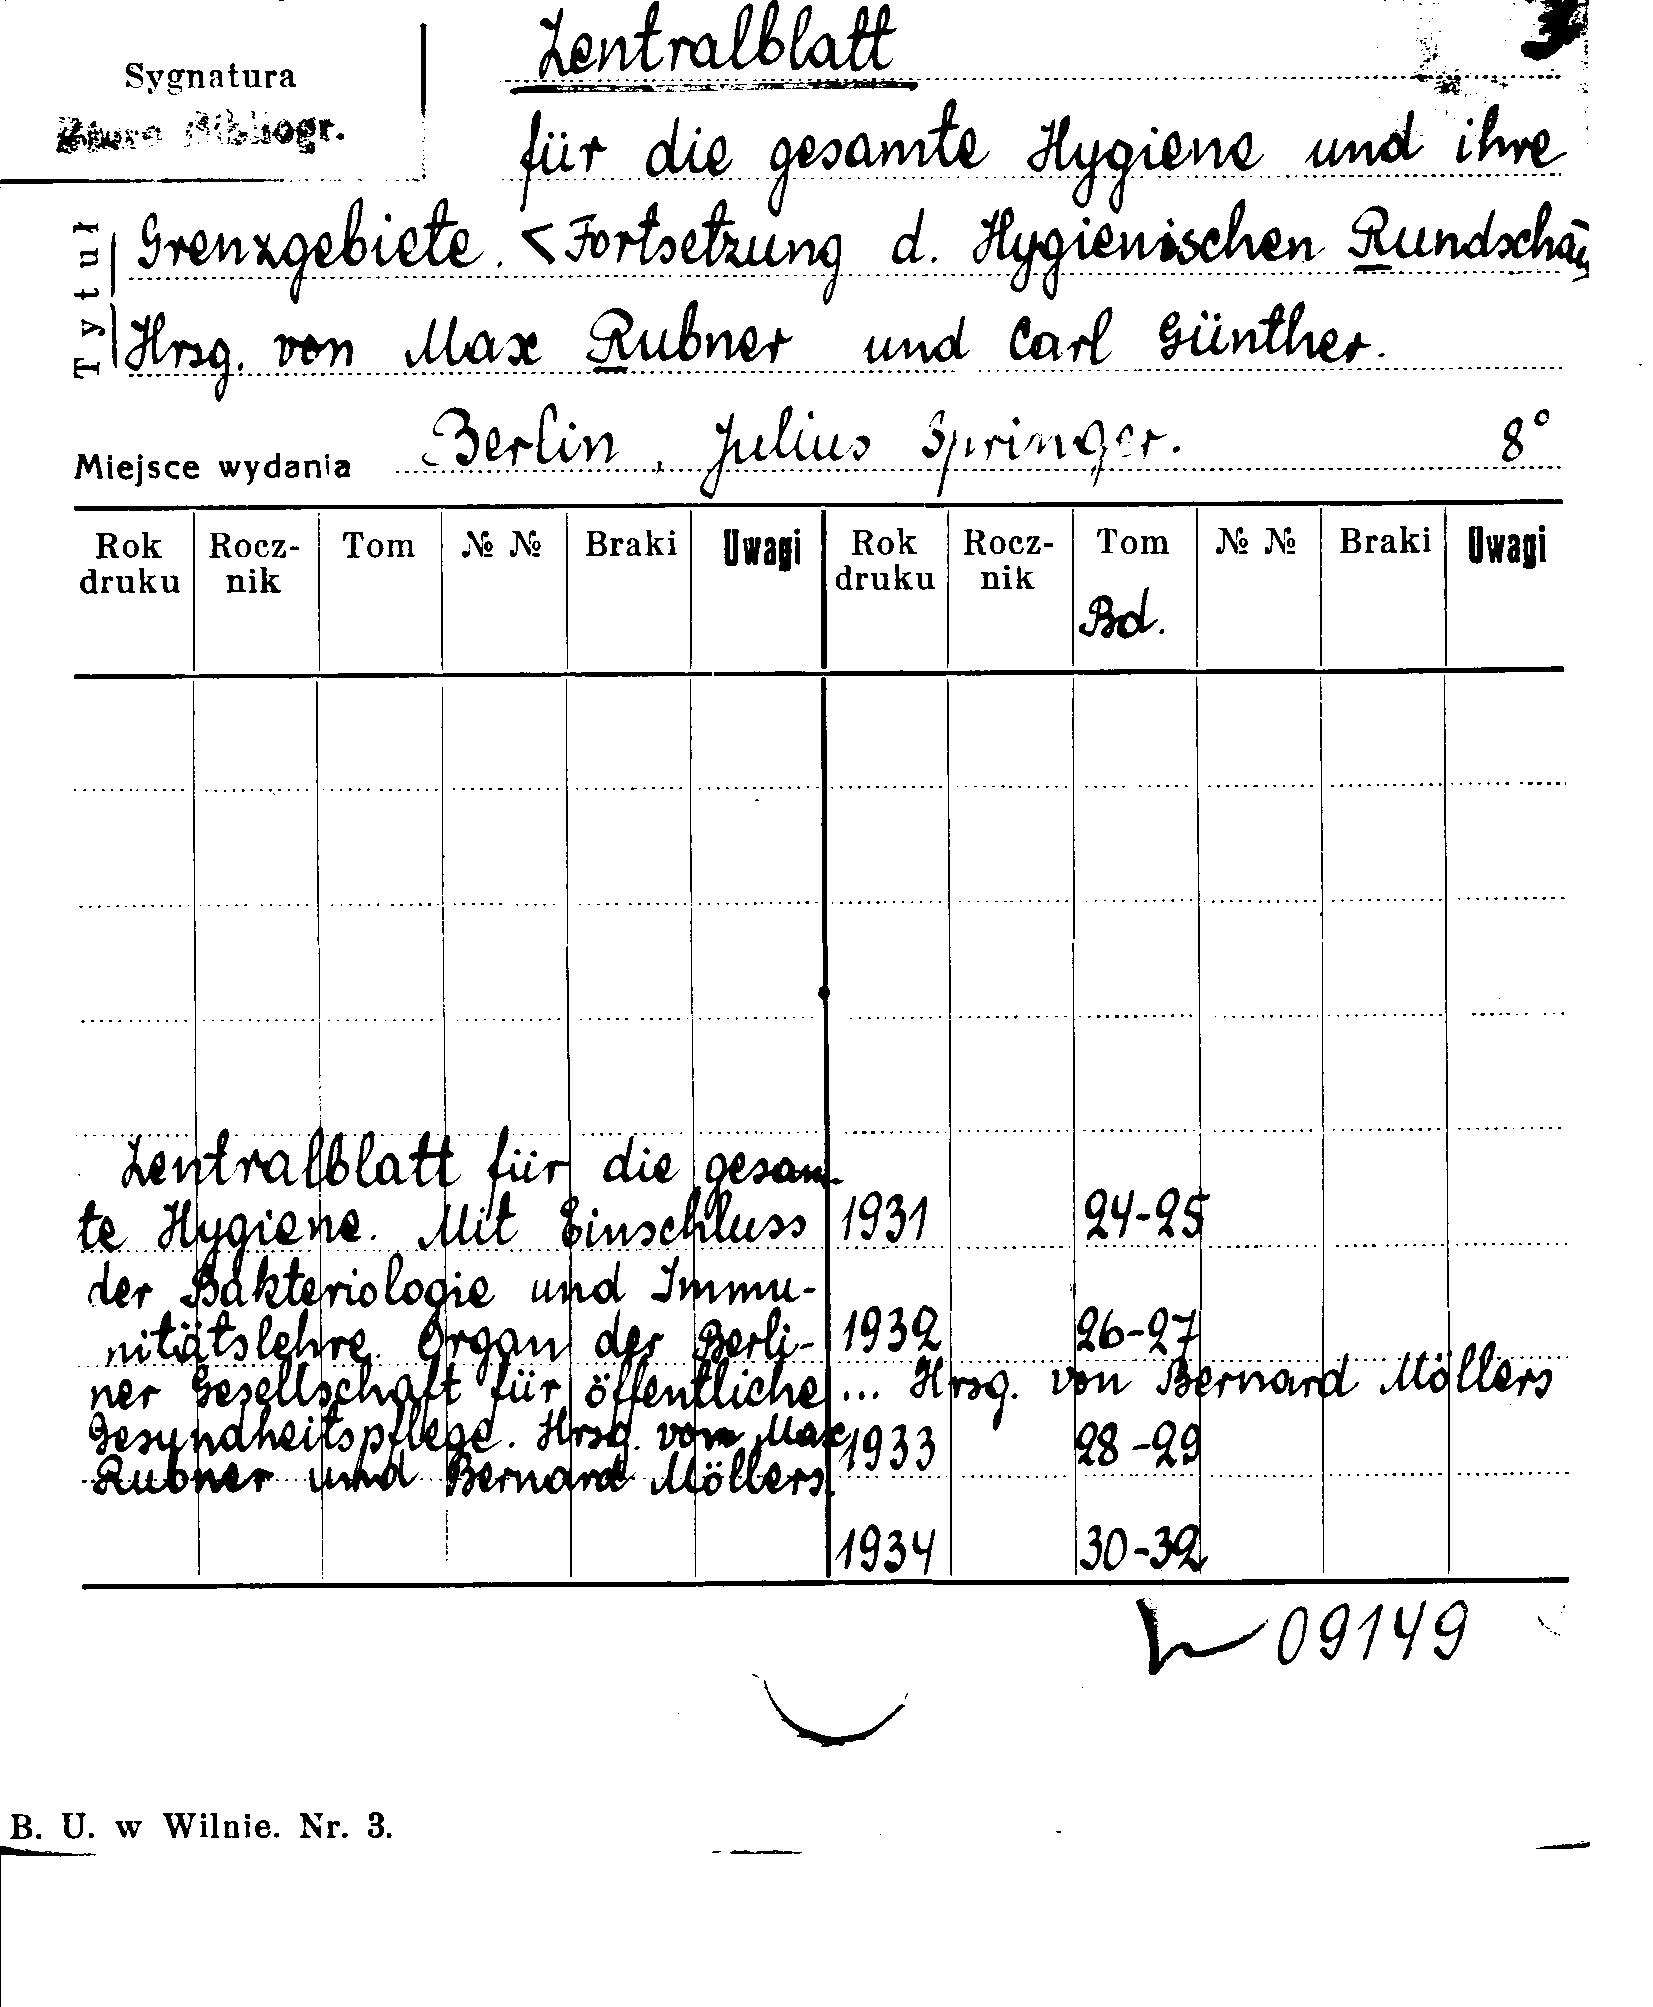 Zentralblatt
Sygnatura
Biuro Bibliogr.
für die gesamte Hygiene und ihre
Tytuł
Grenzgebiete. < Fortsetzung d. Hygienischen Rundschau
Hrsg. von Max Rubner und Carl Günther.
Miejsce wydania Berlin, Julius Springer. 8°
Rok druku Rocz-nik Tom № № Braki Uwagi Rok druku Rocz-nik Tom № № Braki Uwagi
Bd.
Zentralblatt für die gesam-
te Hygiene. Mit Einschluss 1931 24-25
der Bakteriologie und Immu-
nitätslehre. Organ der Berli- 1932 26-27
ner Gesellschaft für öffentliche ... Hrsg. von Bernard Möllers
Gesundheitspflege. Hrsg. von Max 1933 28-29
Rubner und Bernard Möllers.
1934 30-32
09149
B. U. w Wilnie. Nr. 3.